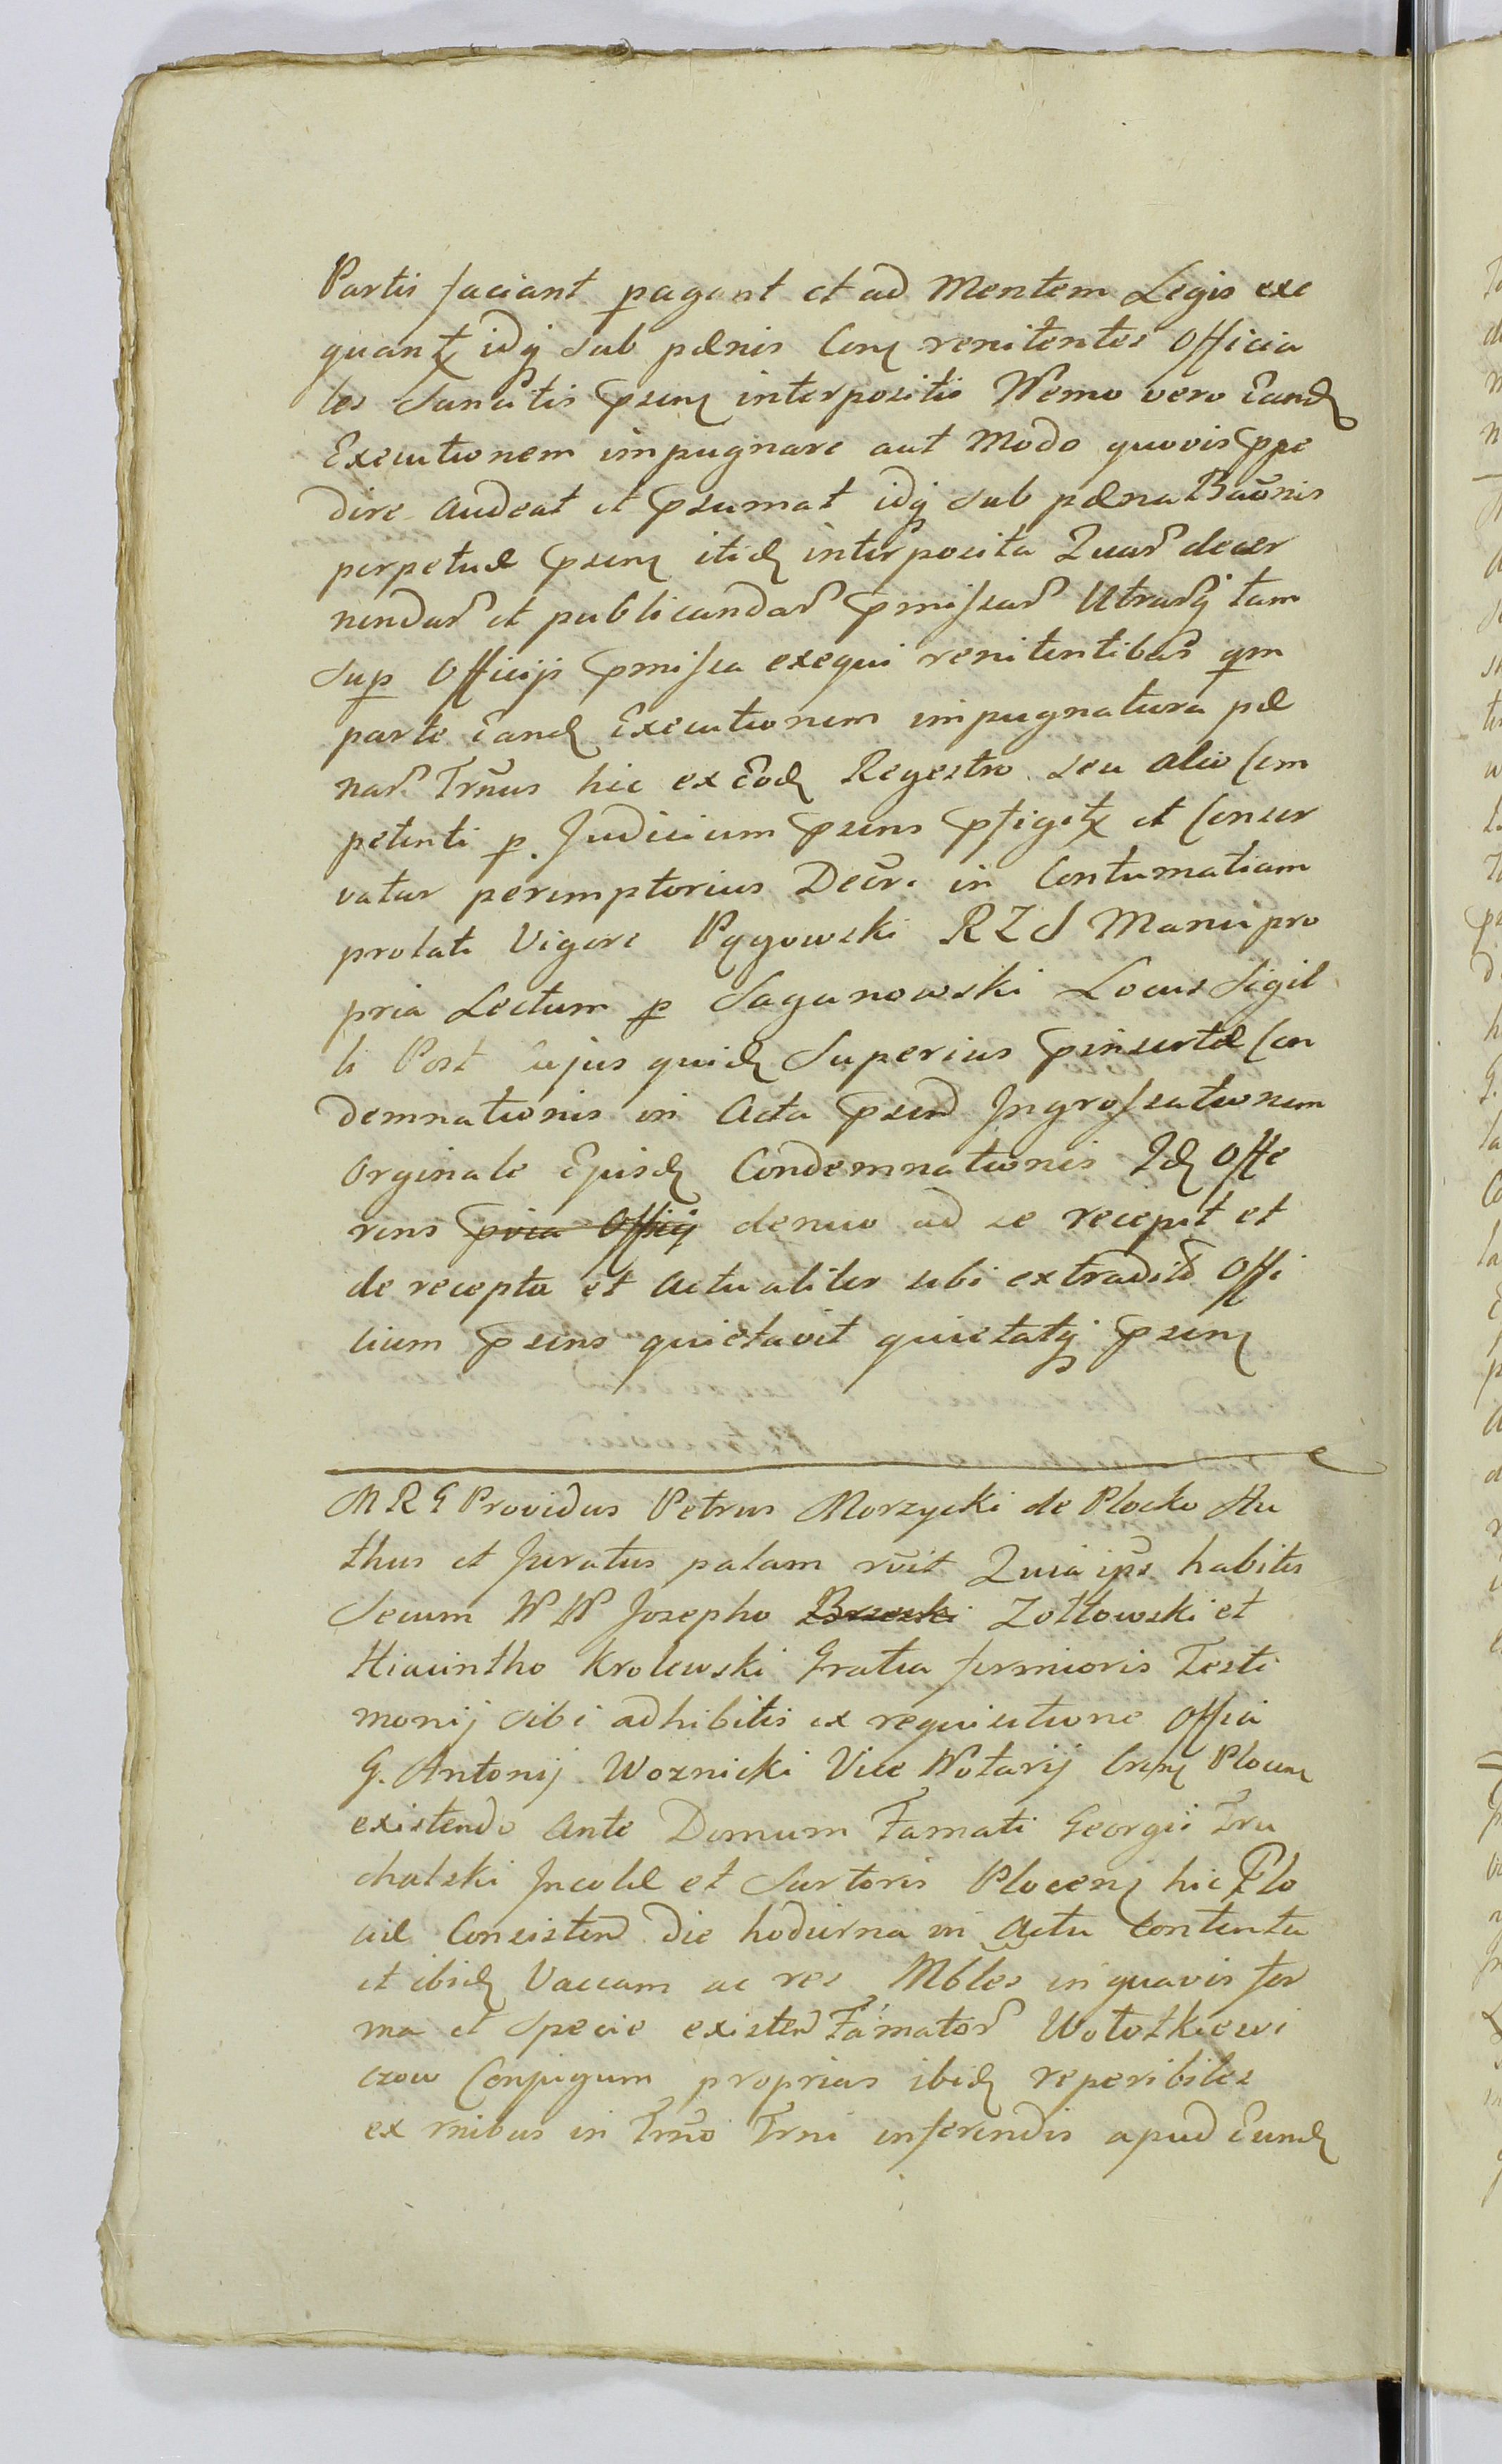 Partis faciant pagant et ad Mentem Legis exe
quant idq sub pœnis Con renitentes Officia
les Sancitis psen interpositis Nemo vero Eand
Executionem impugnare aut Modo quovis ppe
dire audeat et psumat idq sub pœna Baõnis
perpetuæ psen itid interposita Quar decer
nendar et publicandar pmissar Utrarq tam
sup Officijs pmissa exequi renitentibus qm
parte Eand Executionem impugnatura pœ
nar Trnus hic ex Eod Regestro seu alio Com
petenti p. Judicium psens pfigit et Conser
vatur peremptorius Decr. in Contumatiam
prolati Vigore Pągowski RZS Manu pro
pria Lectum p Saganowski Locus Sigil
li Post Cujus quid Superius pinsertæ Con
demnationis in Acta psend Ingrossationem
Orginale Ejusd Condemnationis Id Offe
rens denuo ad se recepit et
de recepto et actualiter sibi extradito Offi
cium psens quietavit quietatq psen
M R G Providus Petrus Morzycki de Plocko Au
thus et Juratus palam rvit Quia ips habitis
Secum N N Josepho Brzeski Zołtowski et
Hiacintho Krolewski Gratia firmioris Testi
monij sibi adhibitis ex requisitione Offia
G. Antonij Woznicki Vice Notarij Plocen
existendo Ante Domum Famati Georgii Tru
chalski Incolæ et Sartoris Plocen hic Plo
ciæ Consisten die hodierna in Actu Contenta
et ibid Vaccam ac res Mbles in quavis for
ma et Specie existen Famator Wołotkiewi
czow Conjugum proprias ibid reperibiles
ex rnibus in Trno Trni inferendis apud Eund